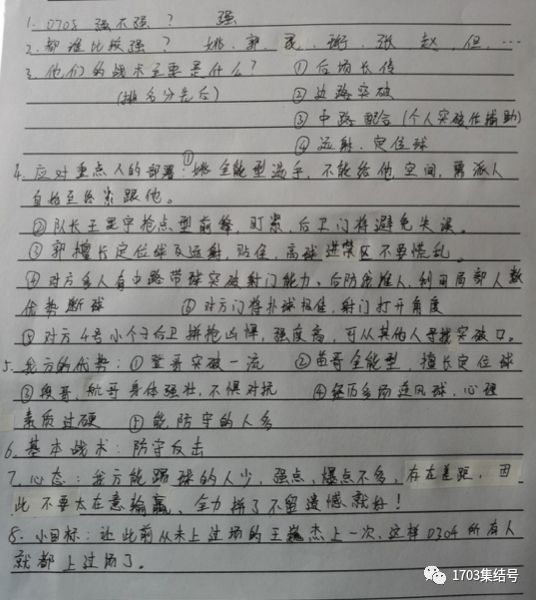 1. 0705 强不强？ 强
2. 都谁比较强？ 姚、郭、民、谢、张、赵、但、…
3. 他们的战术主要是什么？ ① 后场长传
(排名分先后) ② 边路突破
③ 中路配合（个人突破佐辅助）
④ 远射、定位球
4. 应对重点人的部署：①姚全能型选手，不能给他空间，需派人
自始至终紧跟他。
②队长王是守抢点型前锋，盯紧，后卫门将避免失误。
③ 郭擅长定位球及远射，贴住，高球进禁区不要慌乱。
④ 对方多人有中路带球突破射门能力，后防我堆人，利用局部人数
优势断球 ⑤ 对方门将扑球极佳，射门打开角度
⑥ 对方4号小个子后卫拼抢凶悍，强度高，可从其他人寻找突破口。
5. 我方的优势：① 登哥突破一流 ② 苗哥全能型，擅长定位球
③ 段哥、航哥身体强壮，不惧对抗 ④ 经历多场逆风球，心理
素质过硬 ⑤ 能防守的人多
6. 基本战术：防守反击
7. 心态：我方能踢球的人少，强点、爆点不多，存在差距，因
此不要太在意输赢，全力拼了不留遗憾就好！
8. 小目标：让此前从未上过场的王巍杰上一次，这样0304所有人
就都上过场了。
1703集结号